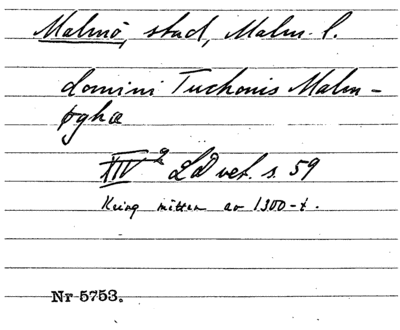 Malmö, stad, Malm. l.
domini Tuchonis Malm-
øghæ
XIV 2 LD vet. s. 59
Kring mitten av 1300-t.
Nr 5753.